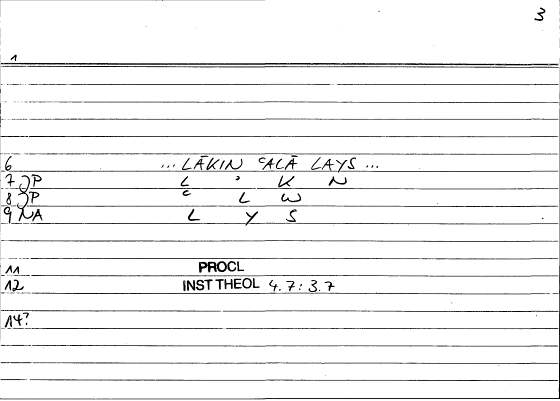 3
1
6 ... LĀKIN ʿALĀ LAYS ...
7 JP L ʾ K N
8 JP ʿ L W
9 NA L Y S
11 PROCL
12 INST THEOL 4.7: 3.7
14?